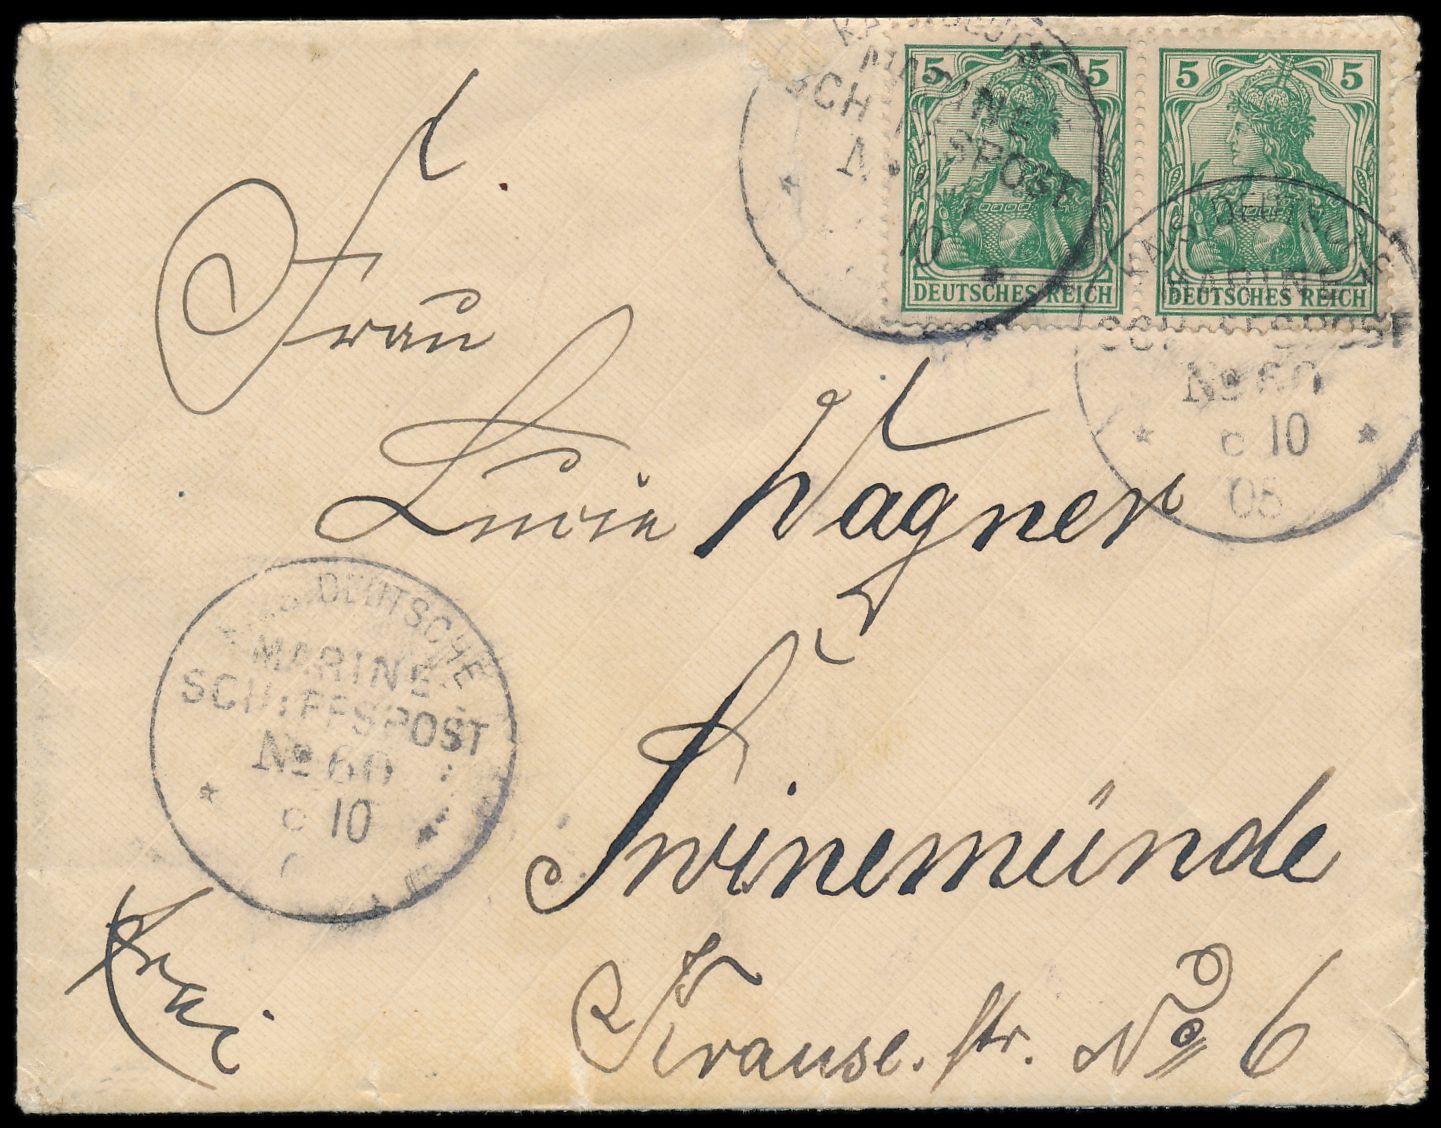 5 5
DEUTSCHES REICH
5 5
DEUTSCHES REICH
MARINE
SCHIFFSPOST
10
KAIS. DEUTSCHE
MARINE
SCHIFFSPOST
No 60
6 10
05
Frau
Lucie Wagner
Swinemünde
Krause. str. No 6
KAIS. DEUTSCHE
MARINE
SCHIFFSPOST
No 60
6 10
Frei